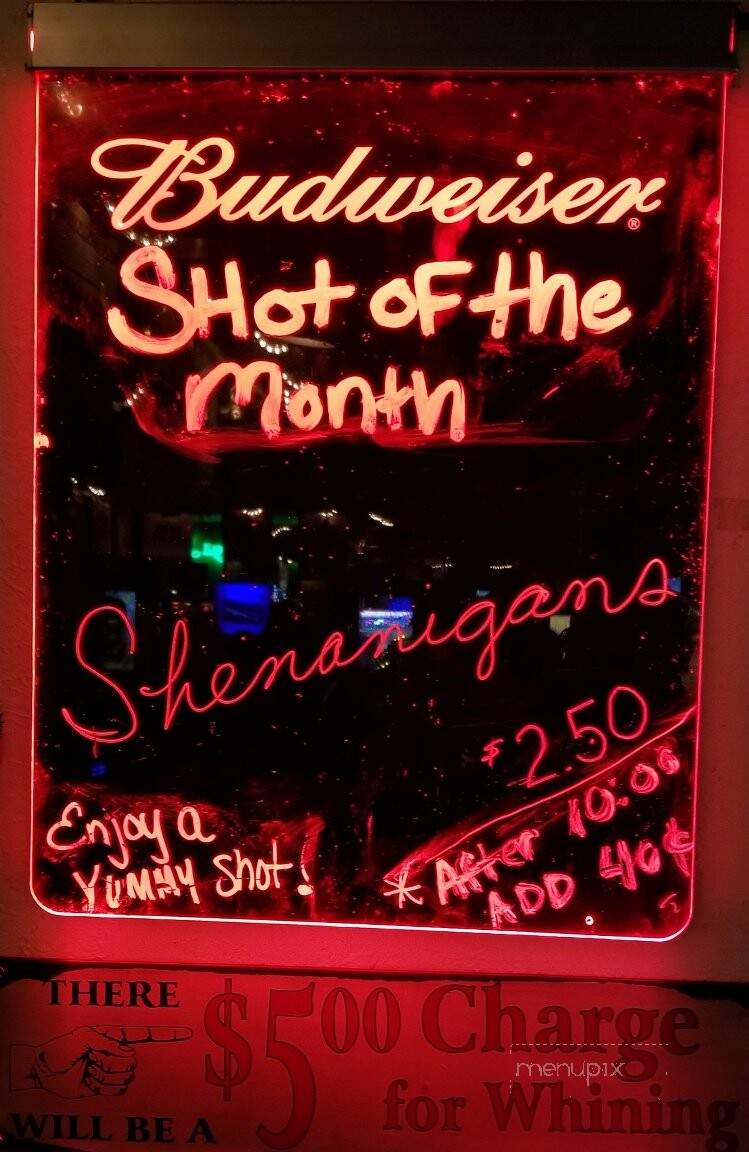 Budweiser®
SHot oF the
Month
Shenanigans
$2.50
Enjoy a
YUMMY Shot!
* After 10:00
ADD 40¢
THERE
WILL BE A
$5.00 Charge
for Whining
menupix